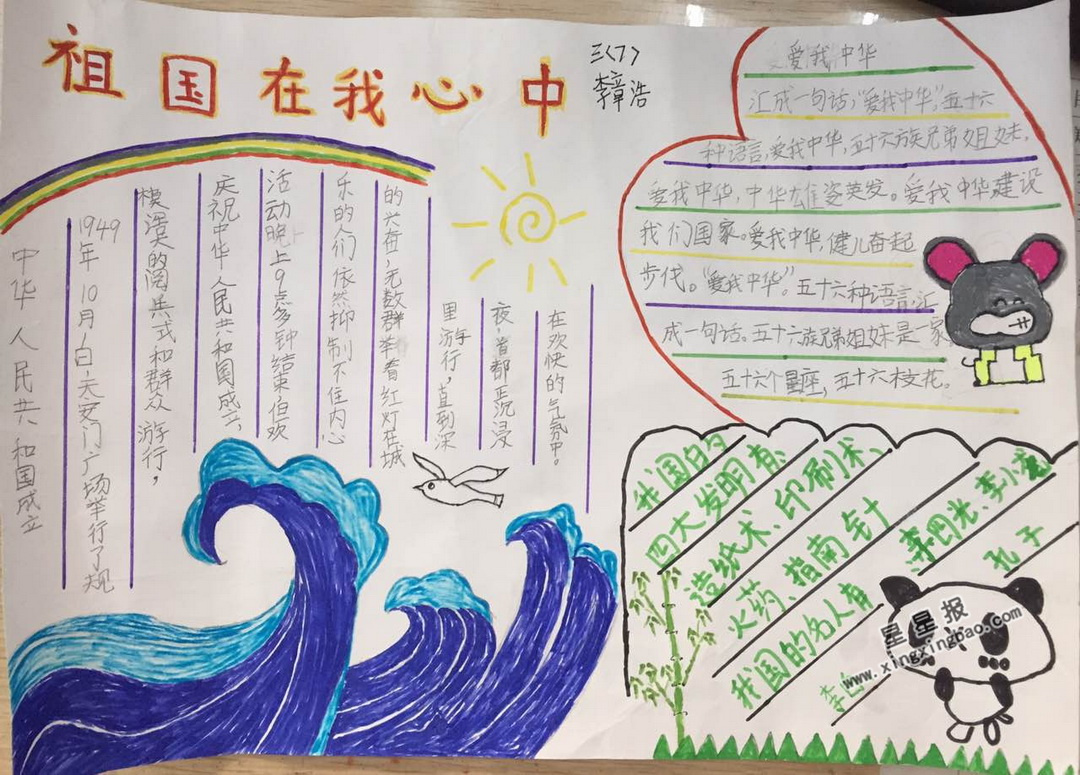 祖国在我心中
三<7>
李章浩
中华人民共和国成立
1949年10月1白,天安门广场举行了规
模浩大的阅兵式和群众游行,
庆祝中华人民共和国成立,
活动晚上9点多钟结束,但欢
乐的人们依然抑制不住内心
的兴奋,无数群举着红灯在城
里游行,直到深
夜,首都正沉浸
在欢快的气氛中。
爱我中华
汇成一句话,“爱我中华”,五十六
种语言,爱我中华,五十六族兄弟姐妹,
爱我中华,中华雄姿英发。爱我中华建设
我们国家。爱我中华,健儿奋起
步伐。“爱我中华”。五十六种语言,汇
成一句话。五十六族兄弟姐妹是一家
五十六个星座,五十六枝花。
我国的
四大发明有
造纸术、印刷术、
火药、指南针
我国的名人有
李四光、李小龙
孔子
星星报
www.xingxingbao.com